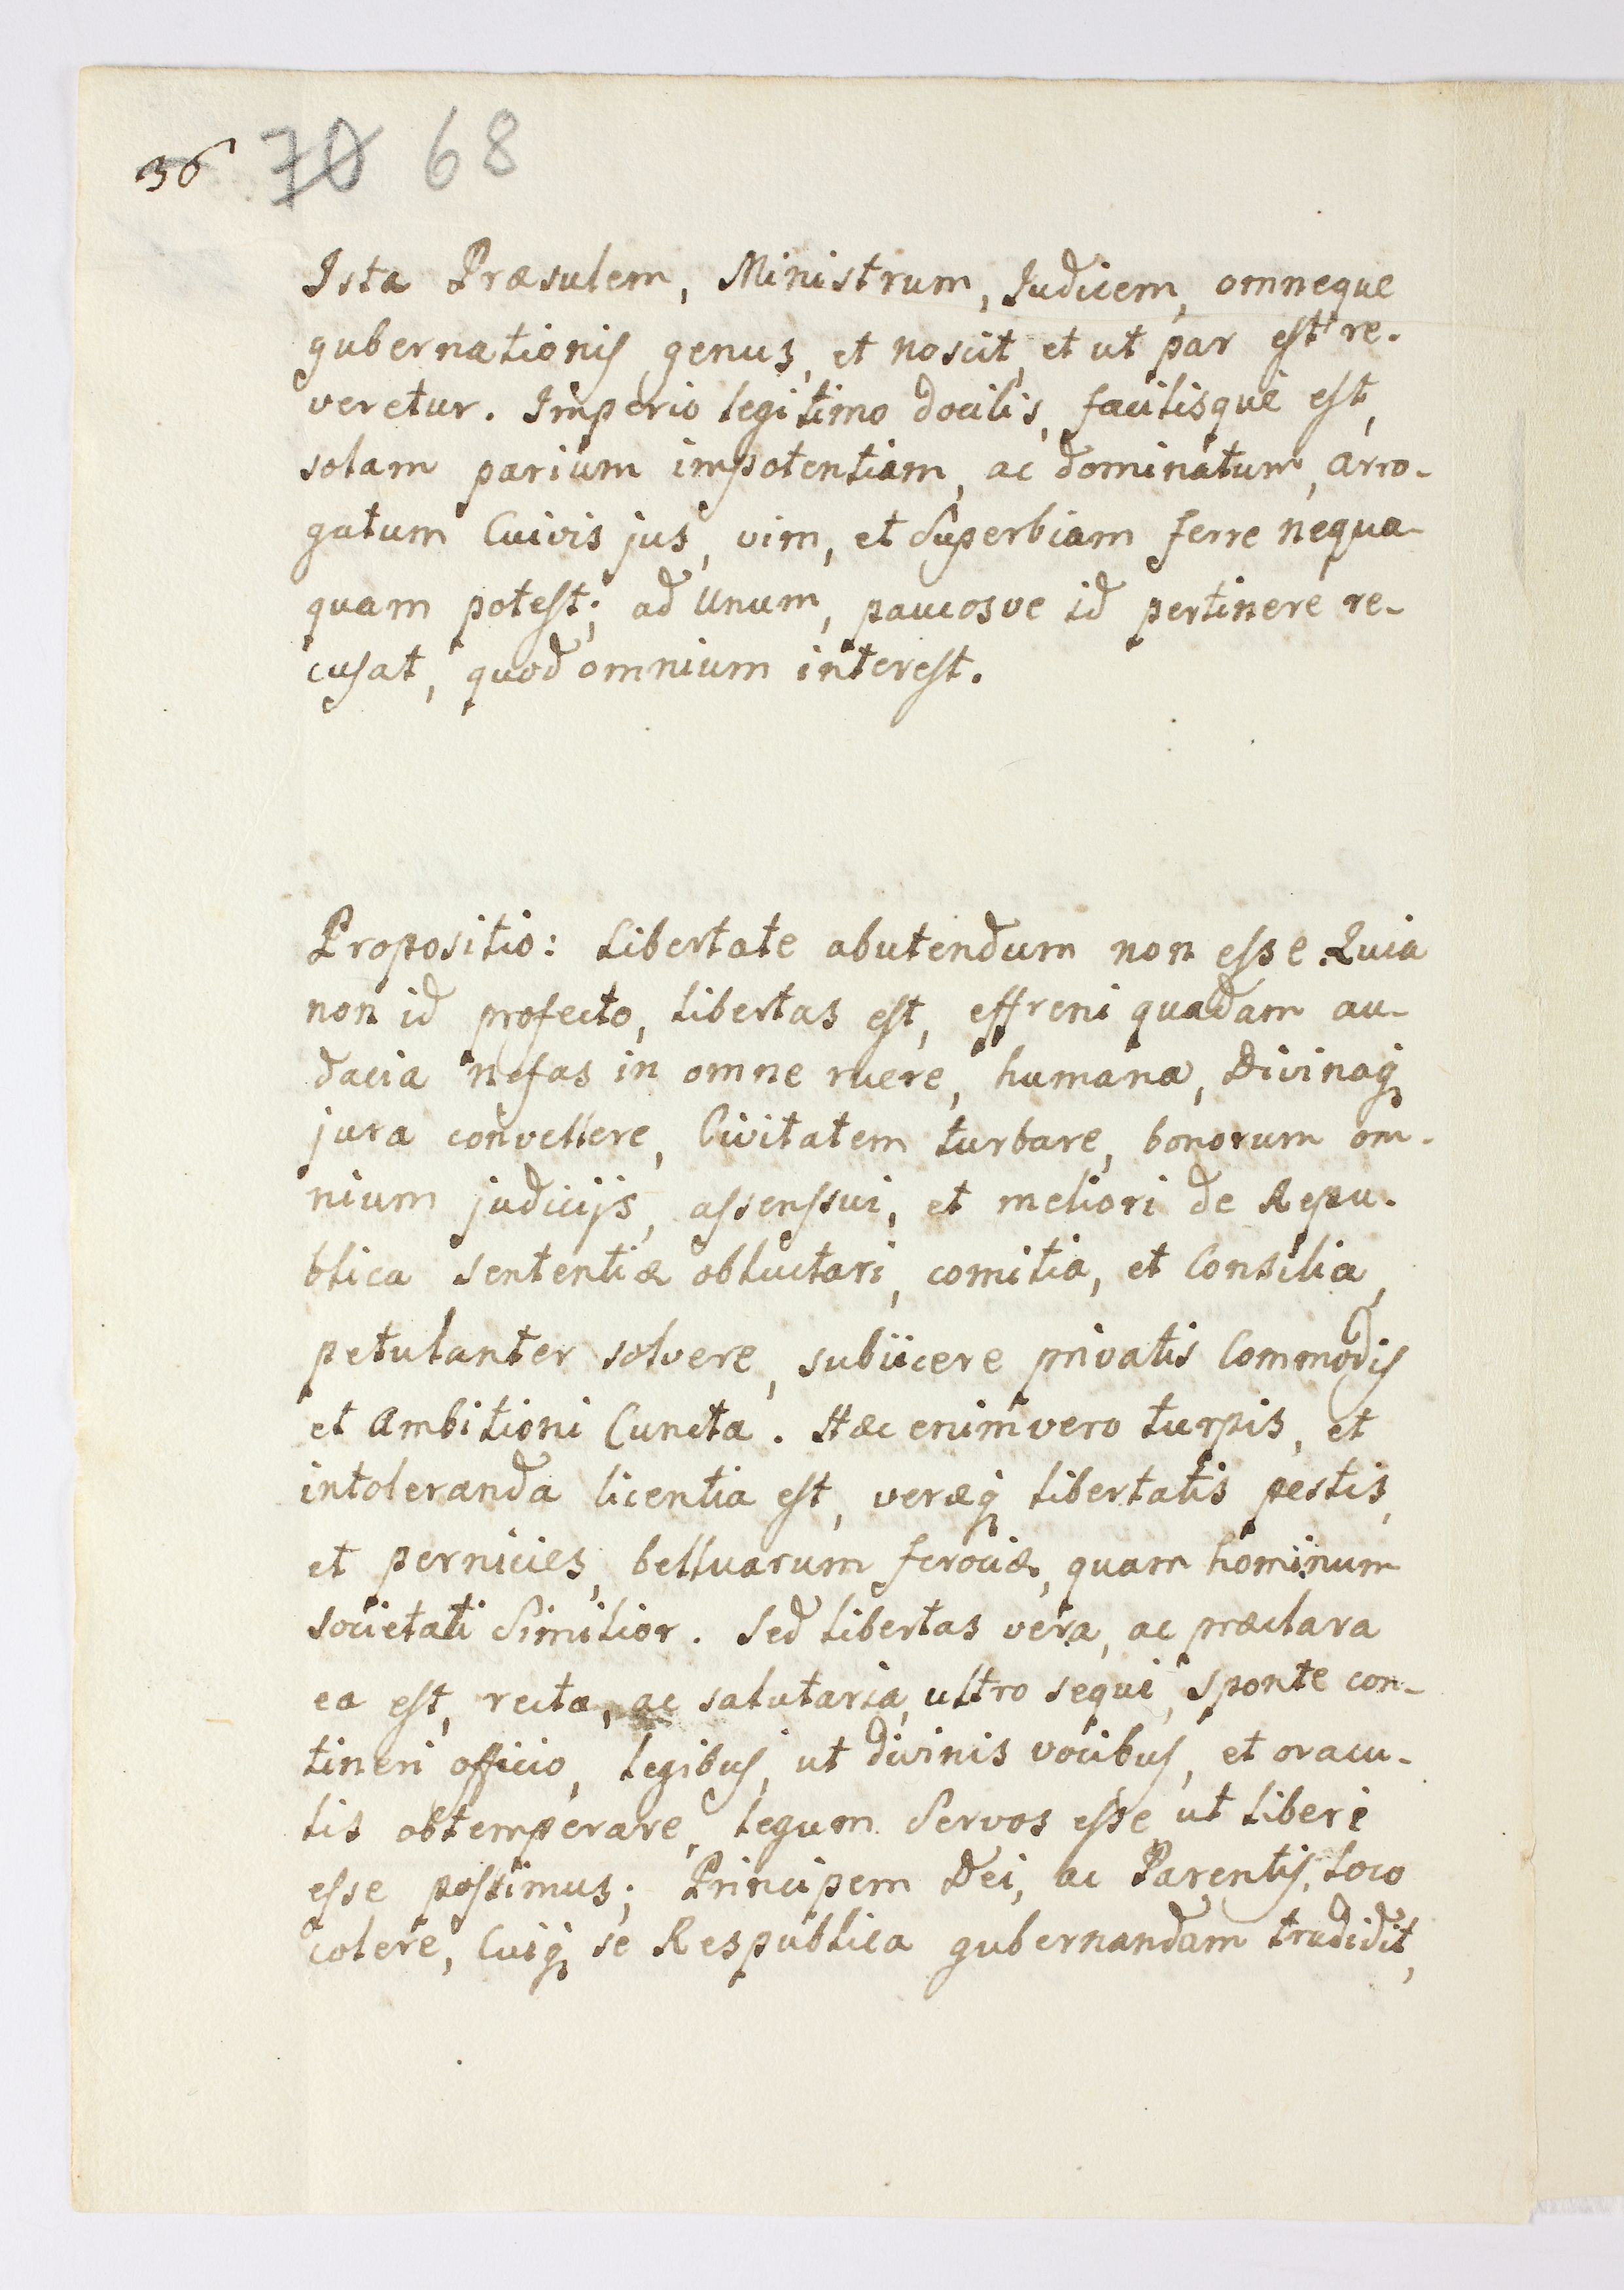 36 70 68
Ista Præsulem, Ministrum, Iudicem, omneque
gubernationis genus, et noscit, et ut par est re-
veretur. Imperio legitimo docilis, facilisque est,
solam parium impotentiam, ac dominatum, arro-
gatum Cuivis jus, vim, et Superbiam ferre nequa-
quam potest; ad Unum, paucosve id pertinere re-
cusat, quod omnium interest.
Propositio: Libertate abutendum non esse. Quia
non id profecto, libertas est, effreni quadam au-
dacia nefas in omne ruere, humana, Divinaq
jura convellere, Civitatem turbare, bonorum om-
nium judicijs, assenssui, et meliori de Repu-
blica sententiæ obluctari, comitia, et Consilia,
petulanter solvere, subiicere privatis Commodis
et Ambitioni Cuncta. Hæc enimvero turpis, et
intoleranda licentia est, veræq libertatis pestis,
et pernicies, belluarum ferociæ, quam hominum
societati Similior. Sed libertas vera, ac præclara
ea est, recta, ac salutaria, ultro sequi, sponte con-
tineri officio, legibus, ut divinis vocibus, et oracu-
lis obtemperare, legum Servos esse ut liberi
esse possimus; Principem Dei, ac Parentis, loco
colere, Cuiq se Respublica gubernandam tradidit,